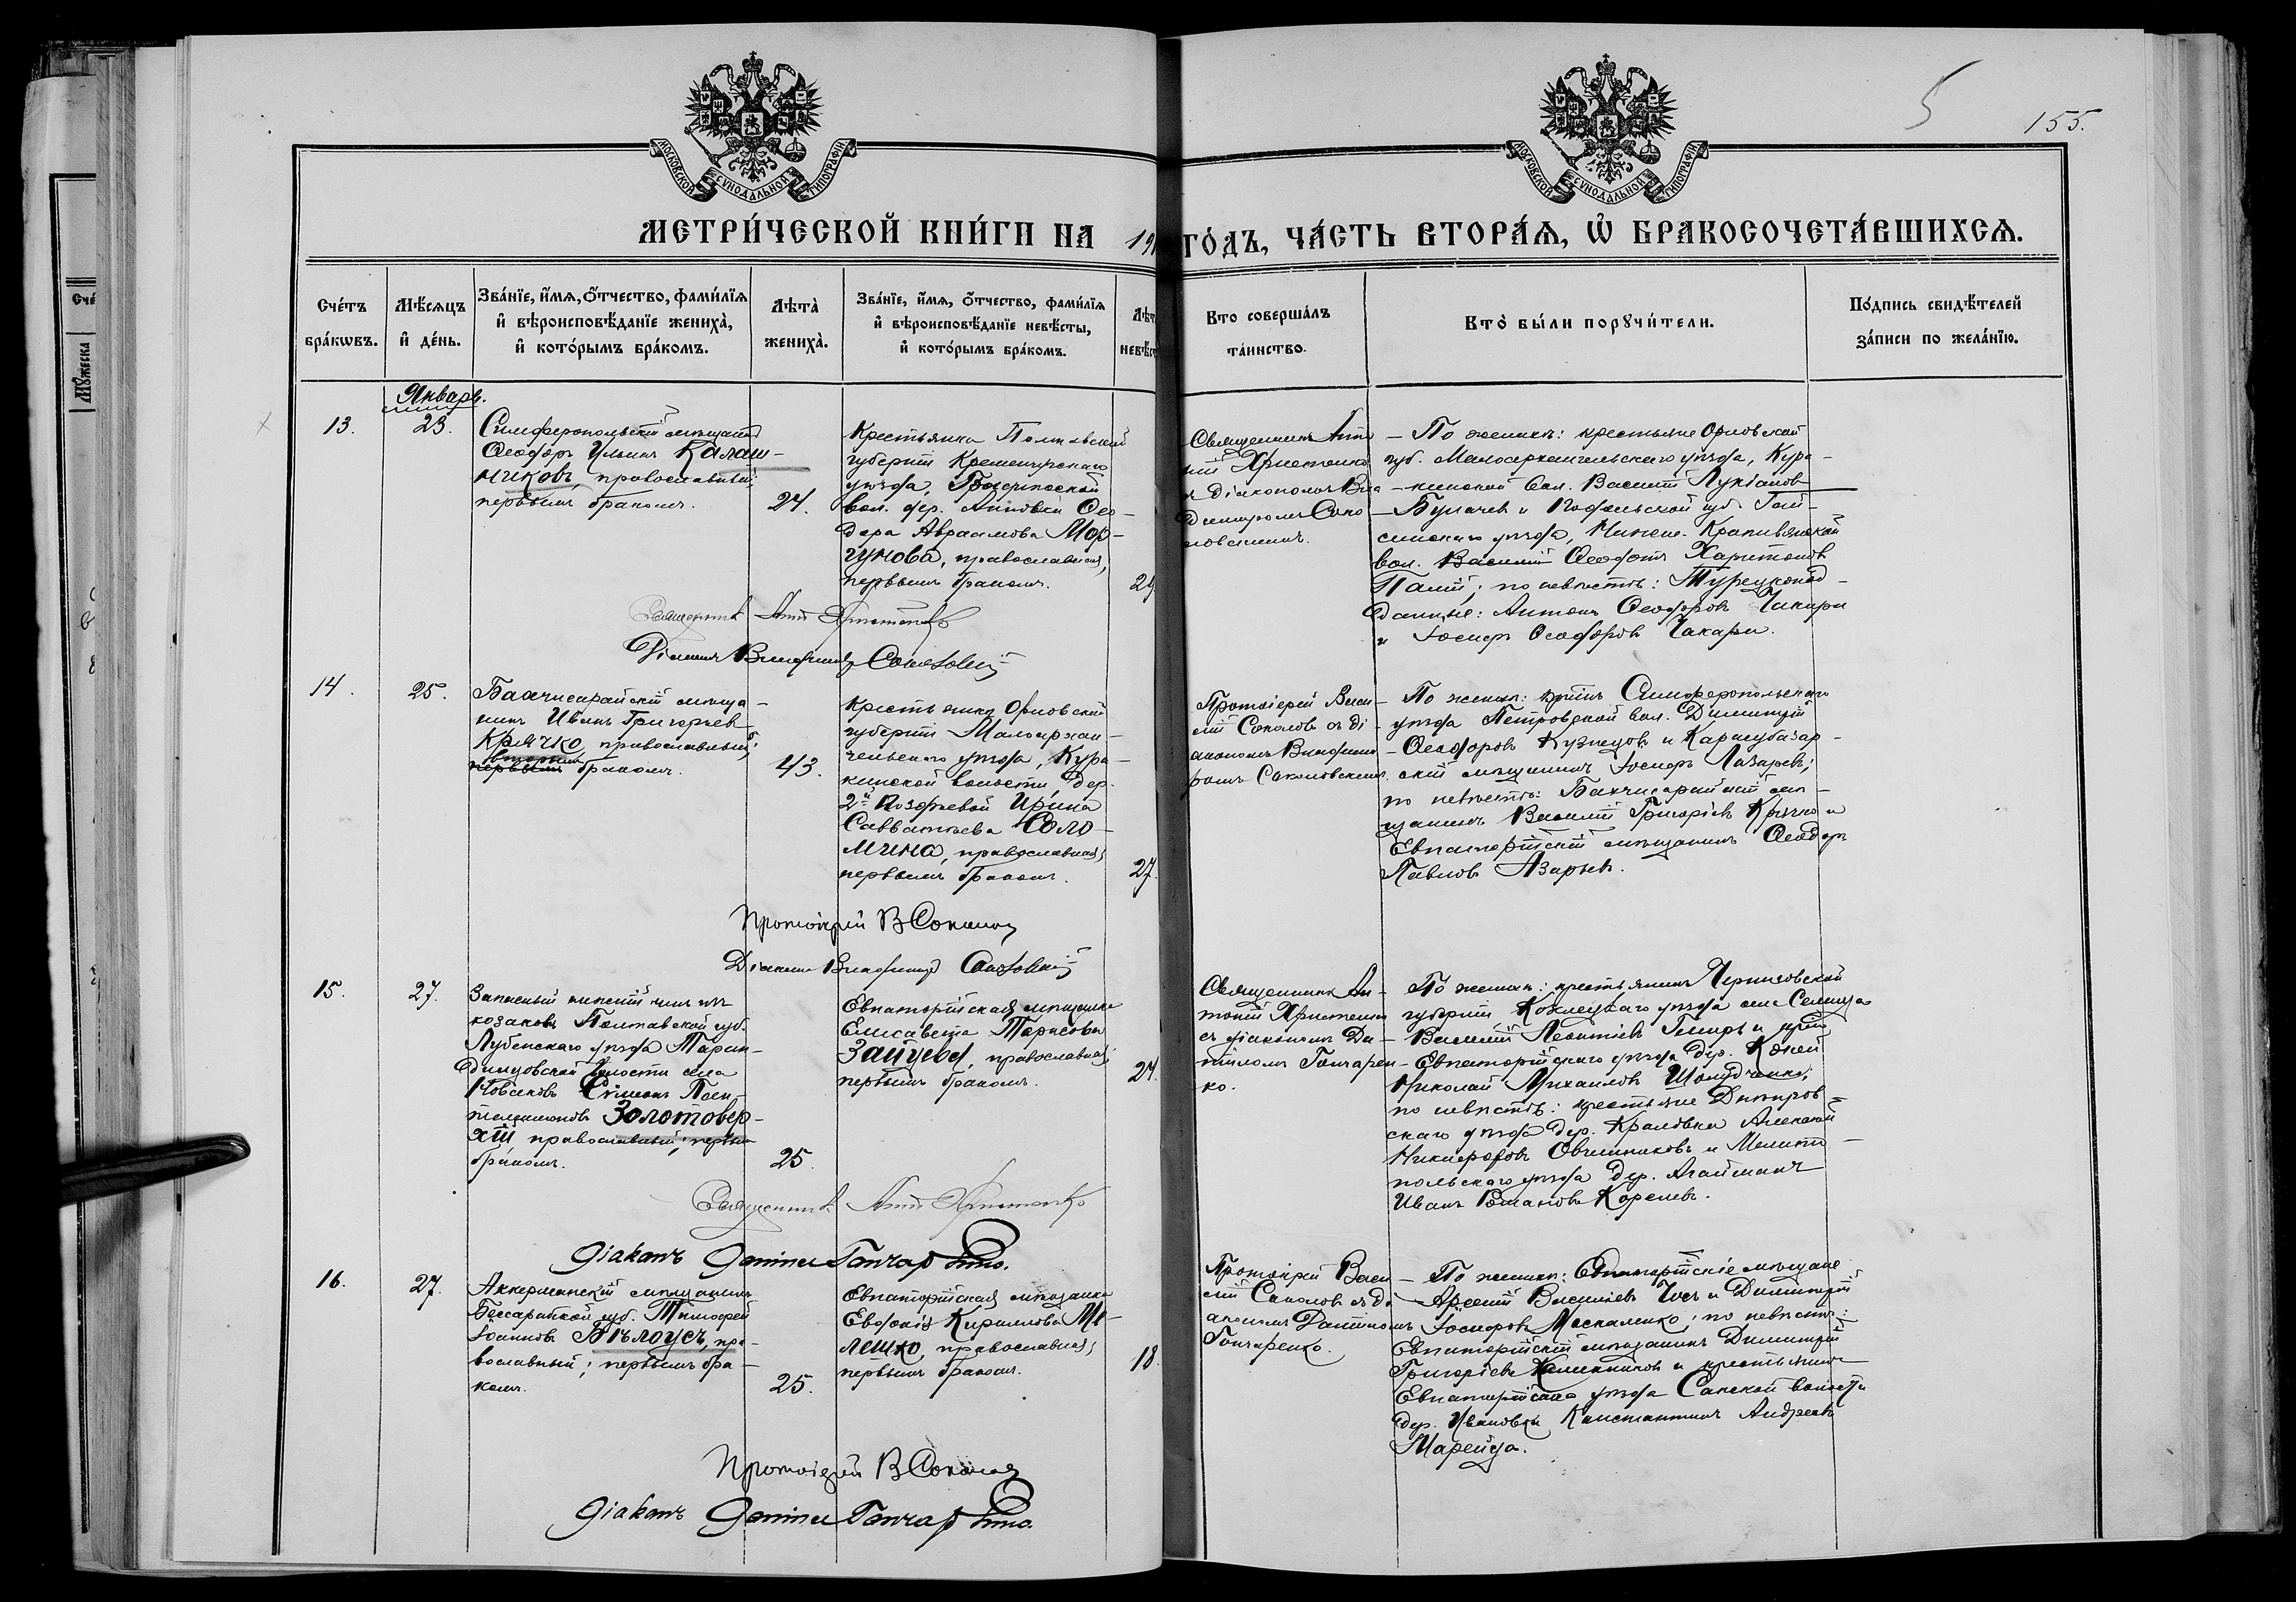 5
155.
МОСКОВСКОЙ СѴНОДАЛЬНОЙ ТИПОГРАФІИ
МОСКОВСКОЙ СѴНОДАЛЬНОЙ ТИПОГРАФІИ
МЕТРИ́ЧЕСКОЙ КНИ́ГИ НА 191 ГО́ДЪ, ЧА́СТЬ ВТОРА́Ѧ, Ѽ БРАКОСОЧЕТА́ВШИХСѦ.
Счéтъ
брáкѡвъ.
Мѣ́сяцъ
и҆ дéнь.
Звáнїе, и҆́мѧ, ѻ҆́тчество, фами́лїѧ
и҆ вѣроисповѣ́данїе женихà,
и҆ котóрымъ брáкомъ.
Лѣтà
женихà.
Звáнїе, и҆́мѧ, ѻ҆́тчество, фами́лїѧ
и҆ вѣроисповѣ́данїе невѣ́сты,
и҆ котóрымъ брáкомъ.
Лѣт
невѣ́ст
Кто совершáлъ
тáинство.
Ктò бы́ли порꙋчи́тели.
Пóдпись свидѣ́телей
зáписи по желáнїю.
Январь.
13.
23.
Симферопольскій мѣщанинъ
Ѳеодоръ Ильинъ Калаш-
никовъ, православный,
первымъ бракомъ.
24.
Крестьянка Полтавской
губерніи Кременчугскаго
уѣзда,
вол. дер. Анновки Ѳео-
дора Авраамова Мор-
гунова, православная,
первымъ бракомъ.
29
Священникъ Анто
ній Христенко
съ діакономъ Вла
димиромъ Соко
ловскимъ.
- По женихѣ: крестьяне Орловской
губ. Малоархангельскаго уѣзда, Кура-
кинской вол. Василій Лукіановъ
Булачевъ и Подольской губ. Гай-
синскаго уѣзда, Нижне-Крапивянской
вол. Василій Ѳеодотъ Харитоновъ
Палій; по невѣстѣ: Турецкопод-
данные: Антонъ Ѳеодоровъ Чакари
и Іосифъ Ѳеодоровъ Чакари.
Священникъ Антоній Христенко
Діаконъ Владимиръ Соколовскій
14.
25.
Бахчисарайскій мѣща-
нинъ Иванъ Григорьевъ
Крячко, православный;
вторымъ
первымъ бракомъ.
43.
Крестьянка Орловской
губерніи Малоархан-
гельскаго уѣзда, Кура-
кинской волости, дер.
2й Козофьевой Ирина
Савватеева Соло-
мина, православная,
первымъ бракомъ.
27.
Протоіерей Васи-
лій Соколовъ съ ді-
акономъ Владими-
ромъ Соколовскимъ.
По женихѣ: кр-нинъ Симферопольскаго
уѣзда Петровской вол. Димитрій
Ѳеодоровъ Кузнецовъ и Карасубазар-
скій мѣщанинъ Іосифъ Лазаревъ;
по невѣстѣ: Бахчисарайскій мѣ-
щанинъ Василій Григоріевъ Крячко и
Евпаторійскій мѣщанинъ Ѳеодоръ
Павловъ Азарьевъ.
Протоіерей В Соколовъ
Діаконъ Владимиръ Соколовскій
15.
27.
Запасный нижній чинъ изъ
козаковъ Полтавской губ.
Лубенскаго уѣзда Таран-
динцовской волости села
Новаковъ Симеонъ Пан-
телеимоновъ Золотовер-
хій православный; первымъ
бракомъ.
25.
Евпаторійская мѣщанка
Елисавета Тарасова
Зайцева, православная,
первымъ бракомъ.
24.
Священникъ Ан-
тоній Христенко
съ діакономъ Да-
ніиломъ Гончарен-
ко.
По женихѣ: крестьянинъ Черниговской
губерніи Козелецкаго уѣзда села Селища
Василій Леонтіевъ и кр-нъ
Евпаторійскаго уѣзда дер. Коней
Николай Михаиловъ Шолудченко;
по невѣстѣ: крестьяне Днѣпров-
скаго уѣзда дер. Каланчака Алексѣй
Никифоровъ Овчинниковъ и Мелито-
польскаго уѣзда дер. Агайманъ
Иванъ Романовъ Корелевъ.
Священникъ Антоній Христенко
Діаконъ Даніилъ Гончаренко.
16.
27.
Аккерманскій мѣщанинъ
Бессарабской губ. Тимофей
Іоанновъ Бѣлоусъ, пра-
вославный; первымъ бра-
комъ.
25.
Евпаторійская мѣщанка
Евдокія Кириллова Ме-
лешко, православная,
первымъ бракомъ.
18.
Протоіерей Васи-
лій Соколовъ съ ді-
акономъ Даніиломъ
Гончаренко.
По женихѣ: Евпаторійскіе мѣщане
Арсеній Васильевъ Чусъ и Димитрій
Іосифовъ Москаленко; по невѣстѣ:
Евпаторійскій мѣщанинъ Димитрій
Григоріевъ Калинниковъ и крестьянинъ
Евпаторійскаго уѣзда Сакской волости
дер. Ивановки Константинъ Андреевъ
Марейда.
Протоіерей В Соколовъ
Діаконъ Даніилъ Гончаренко.